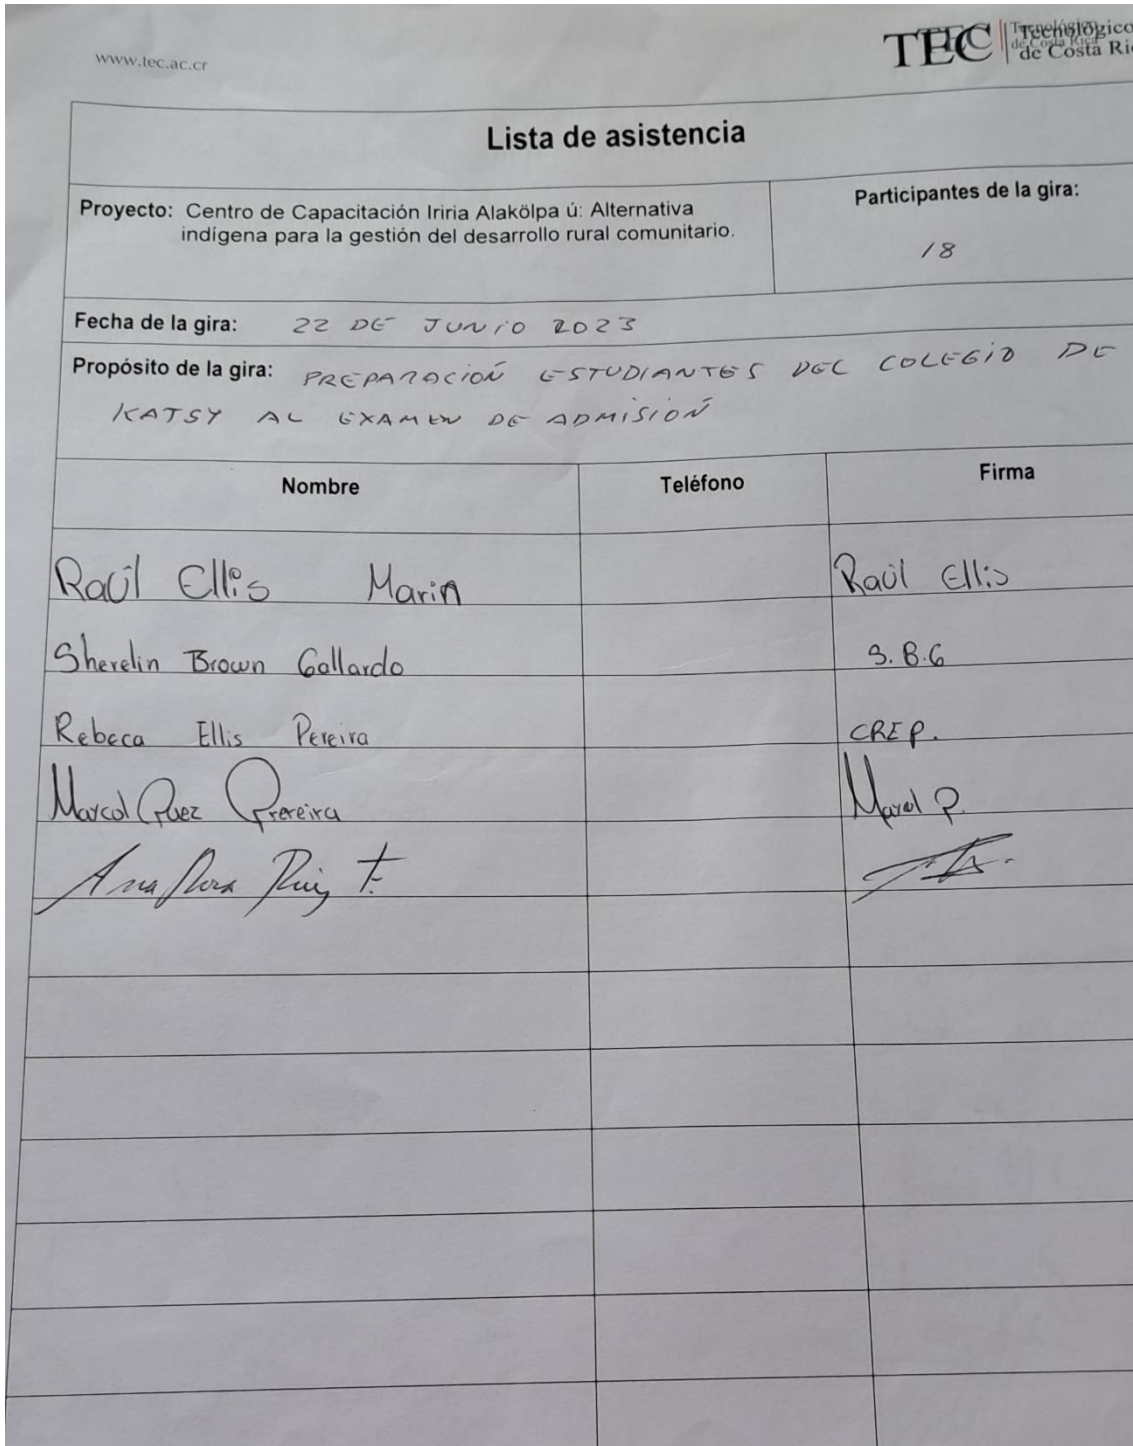 www.tec.ac.cr
TEC Tecnológico
de Costa Ric
Lista de asistencia
Proyecto: Centro de Capacitación Iriria Alakölpa ú: Alternativa
indígena para la gestión del desarrollo rural comunitario.
Participantes de la gira:
18
Fecha de la gira: 22 DE JUNIO 2023
Propósito de la gira: PREPARACIOÑ ESTUDIANTES DEL COLEGIO DE
KATSY AL EXAMEN DE ADMISIOÑ
Nombre Teléfono Firma
Raúl Ellis Marin Raúl Ellis
Sherelin Brown Gallardo S.B.G
Rebeca Ellis Pereira CREP.
Marcol Prereira P.
Ana Ruiz F.